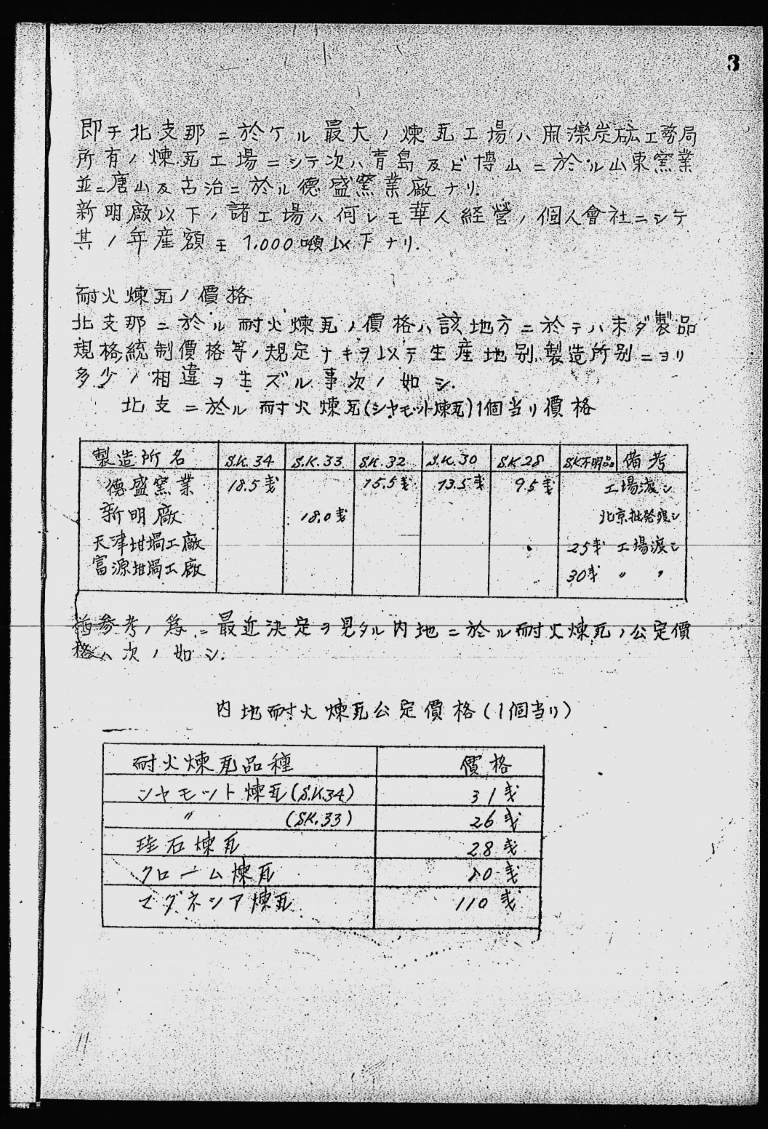 3
即チ北支那ニ於ケル最大ノ煉瓦工場ハ開灤炭砿工務局
所有ノ煉瓦工場ニシテ次ハ青島及ビ博山ニ於ル山東窯業
並ニ唐山及古冶ニ於ル徳盛窯業廠ナリ.
新明廠以下ノ諸工場ハ何レモ華人経営ノ個人會社ニシテ
其ノ年産額モ1.000噸以下ナリ.
耐火煉瓦ノ價格
北支那ニ於ル耐火煉瓦ノ價格ハ該地方ニ於テハ未ダ製品
規格統制價格等ノ規定ナキヲ以テ生産地別製造所別ニヨリ
多少ノ相違ヲ生ズル事次ノ如シ.
北支ニ於ル耐火煉瓦(シヤモット煉瓦)1個当リ價格
製造所名 S.K.34 S.K.33 S.K.32 S.K.30 S.K.28 S.K不明品 備考
徳盛窯業 18.5銭 15.5銭 13.5銭 9.5銭 工場渡シ
新明廠 18.0銭 北京
天津坩堝工廠 25銭 工場渡シ
富源坩堝工廠 30銭 〃 〃
尚参考ノ為ニ最近決定ヲ見タル内地ニ於ル耐火煉瓦ノ公定價
格ハ次ノ如シ.
内地耐火煉瓦公定價格(1個当リ)
耐火煉瓦品種 價格
シヤモット煉瓦(S.K.34) 31銭
〃 (S.K.33) 26銭
珪石煉瓦 28銭
クローム煉瓦 銭
マグネシア煉瓦 110銭